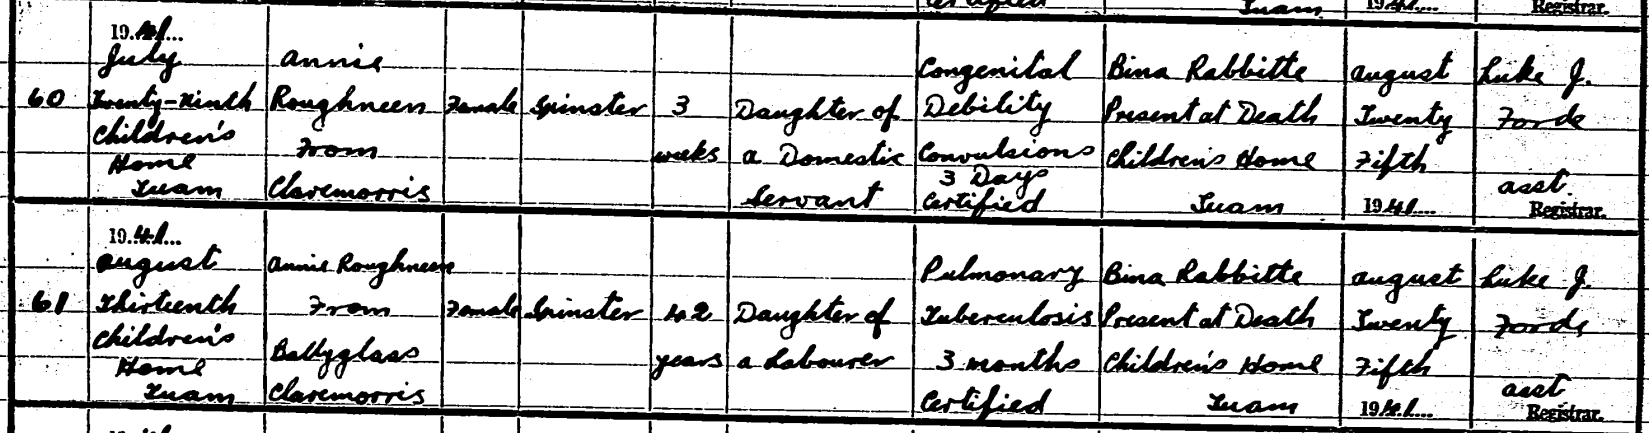 Certified
Tuam
1941
Registrar.
60
1941
July
Twenty-Ninth
Children's
Home
Tuam
Annie
Roughneen
From
Claremorris
Female
Spinster
3
weeks
Daughter of
a Domestic
Servant
Congenital
Debility
Convulsions
3 Days
Certified
Bina Rabbitte
Present at Death
Children's Home
Tuam
August
Twenty
Fifth
1941
Luke J.
Forde
asst.
Registrar.
61
1941
August
Thirteenth
Children's
Home
Tuam
Annie Roughneen
From
Ballyglass
Claremorris
Female
Spinster
42
years
Daughter of
a Labourer
Pulmonary
Tuberculosis
3 months
Certified
Bina Rabbitte
Present at Death
Children's Home
Tuam
August
Twenty
Fifth
1941
Luke J.
Forde
asst
Registrar.